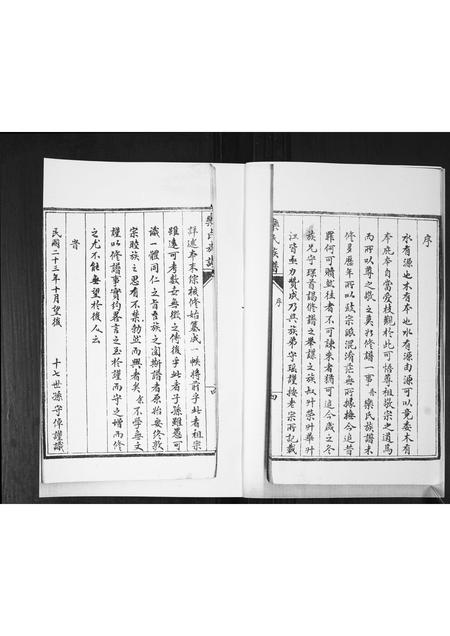 序
水有源也木有本也水有源由源可以竟委木有
本庇本自當愛枝觀於此可悟尊祖敬宗之道焉
而所以尊之敬之莫於修譜一事我欒氏族譜未
修多歷年所以致宗派混淆茫無所據撫今追昔
罪何可贖然往者不可諫來者猶可追今歲之冬
族兄守琛首謁修譜之舉謀之族叔升榮升華升
江皆亟力贊成乃與族弟守瑶謹按老宗所記載
欒氏族譜
序
四
詳述本末綜核修始纂成一帙將前乎此者祖宗
雖遠可考數世無徵之傳後乎此者子孫雖愚可
識一體同仁之旨吾族之閱斯譜者原始要終敦
宗睦族之思有不禁勃然而興者矣余不學無文
謹以修譜事實約畧言之至於謹而守之增而修
之尤不能無望於後人云
旹
民國二十三年十月望後
十七世孫守倬謹識